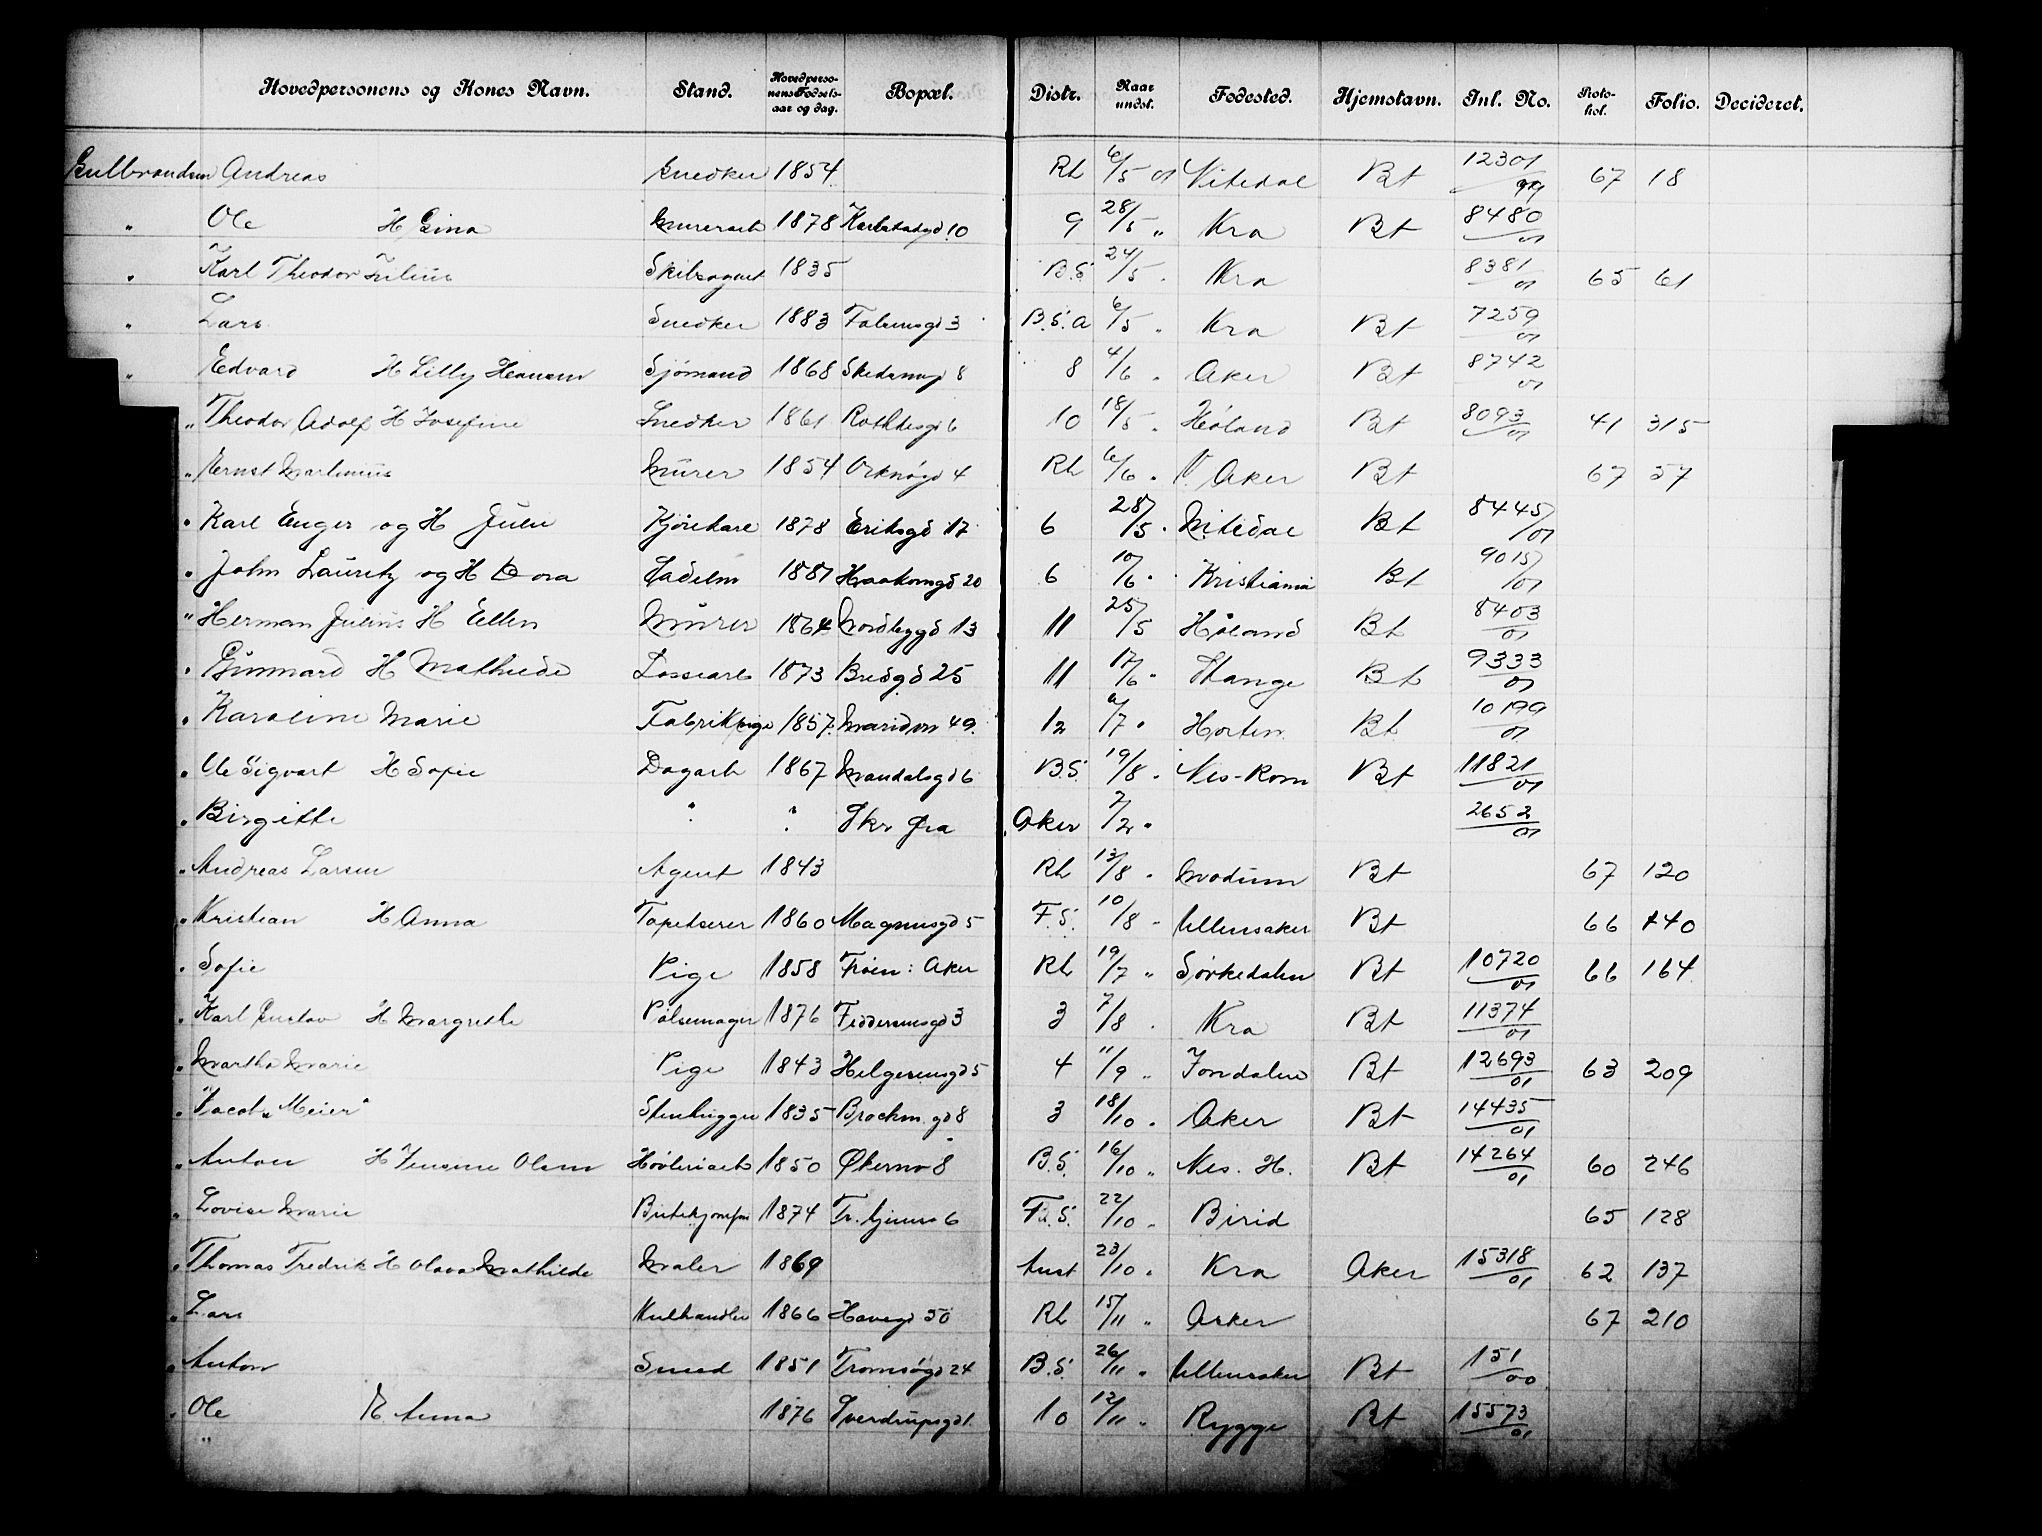 Hovedpersonens og Kones Navn. Stand. Hovedpersonens Fødselsaar og dag. Bopæl. Distr. Naar undst. Fødested. Hjemstavn. Jnl. No. Protokol. Folio. Decideret.
Gulbrandsen Andreas Snedker 1854 Rh 6/5 01 Nitedal Bt 12301/99 67 18
" Ole H Gina Murerarb 1878 Karlstadgd 10 9 28/5 " Kra Bt 8480/01
" Karl Theodor Julius 1835 B.S. 24/5 " Kra 8381/01 65 61
" Lars Snedker 1883 Falsensgd 3 B.S.a 6/5 " Kra Bt 7259/01
" Edvard H Lilly Hansen Sjømand 1868 Skedsmogd 8 8 4/6 " Aker Bt 8742/01
" Theodor Adolf H Josefine Snedker 1861 Rathkesgd 6 10 18/5 " Høland Bt 8093/01 41 315
" Ernst Martinius Murer 1854 Orknøgd 4 Rh 6/6 " V. Aker Bt 67 57
" Karl Enger og H Julie Kjørekarl 1878 Eriksgd 17 6 28/5 " Nitedal Bt 8445/01
" John Lauritz og H Dora 1881 Haakonsgd 20 6 10/6 " Kristiania Bt 9015/01
" Herman Julius H Ellen Murer 1864 Nordbygd 13 11 25/5 Høland Bt 8403/01
" Gunnard H Mathilde Lossearb 1873 Bredgd 25 11 17/6 " Stange Bt 9333/01
" Karoline Marie Fabrikpige 1857 Maridvn 49 12 6/7 " Horten Bt 10199/01
" Ole Sigvart H Sofie Dagarb 1867 Mandalsgd 6 B.S. 19/8 " Nes-Rom Bt 11821/01
" Birgitte " " Skr fra Aker 7/2 " 2652/01
" Andreas Larsen Agent 1843 Rh 13/8 " Modum Bt 67 120
" Kristian H Anna Tapetserer 1860 Magnusgd 5 F.S. 10/8 " Ullensaker Bt 66 140
" Sofie Pige 1858 Frøen : Aker Rh 19/7 " Sørkedalen Bt 10720/01 66 164
" Karl Gustav H Margrethe Pølsemager 1876 Feddersensgd 3 3 7/8 " Kra Bt 11374/01
" Martha Marie Pige 1843 Helgesensgd 5 4 11/9 " Jondalen Bt 12693/01 63 209
" Jacob "Meier" Stenhugger 1835 Brochm. gd 8 3 18/10 " Aker Bt 14435/01
" Anton H Jensine Olsen Høvleriarb 1850 Økernv 8 B.S. 16/10 " Nes. H. Bt 14264/01 60 246
" Lovise Marie 1874 Tr. hjemsv 6 F.S. 22/10 " Birid 65 128
" Thomas Fredrik H Olava Mathilde Maler 1869 Aust 23/10 " Kra Aker 15318/01 62 137
" Lars Kulhandler 1866 Havegd 50 Rh 15/11 " Asker 67 210
" Anton Smed 1851 Tromsøgd 24 B.S. 26/11 " Ullensaker Bt 151/00
" Ole E Anna 1876 Sverdrupsgd 1. 10 12/11 " Rygge Bt 15573/01
"